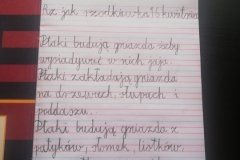 Rz jak rzodkiewka 16 kwietnia
Ptaki budują gniazda żeby
wysiadywać w nich jaja.
Ptaki zakładają gniazda
na drzewach, słupach i
poddaszu.
Ptaki budują gniazda z
patyków, słomek, listków,